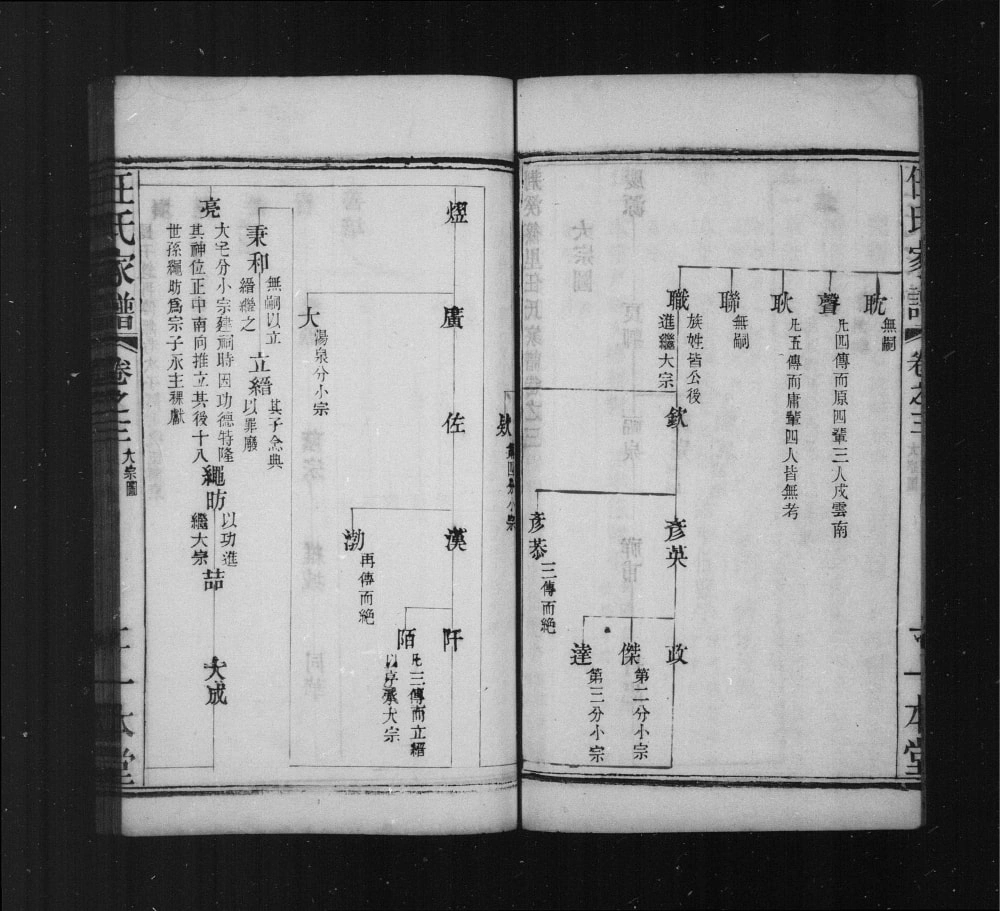 任氏家譜
卷之三
大宗圖
一本堂
耽
無嗣
聲
凡四傳而原四輩三人戍雲南
耿
凡五傳而庸輩四人皆無考
聯
無嗣
職
族姓皆公後
進繼大宗
欽
彥英
政
傑
第二分小宗
達
第三分小宗
彥恭
三傳而絕
第四分小宗
熤
廣
佐
漢
阡
陌
凡三傳而立縉
以序承大宗
渤
再傳而絕
大
湯泉分小宗
秉和
無嗣以立
縉繼之
立縉
其子念典
以罪廢
亮
大宅分小宗建嗣時因功德特隆
其神位正中南向推立其後十八
世孫繩昉爲宗子永主祼獻
繩昉
以功進
繼大宗
喆
大成
任氏家譜
卷之三
大宗圖
一本堂